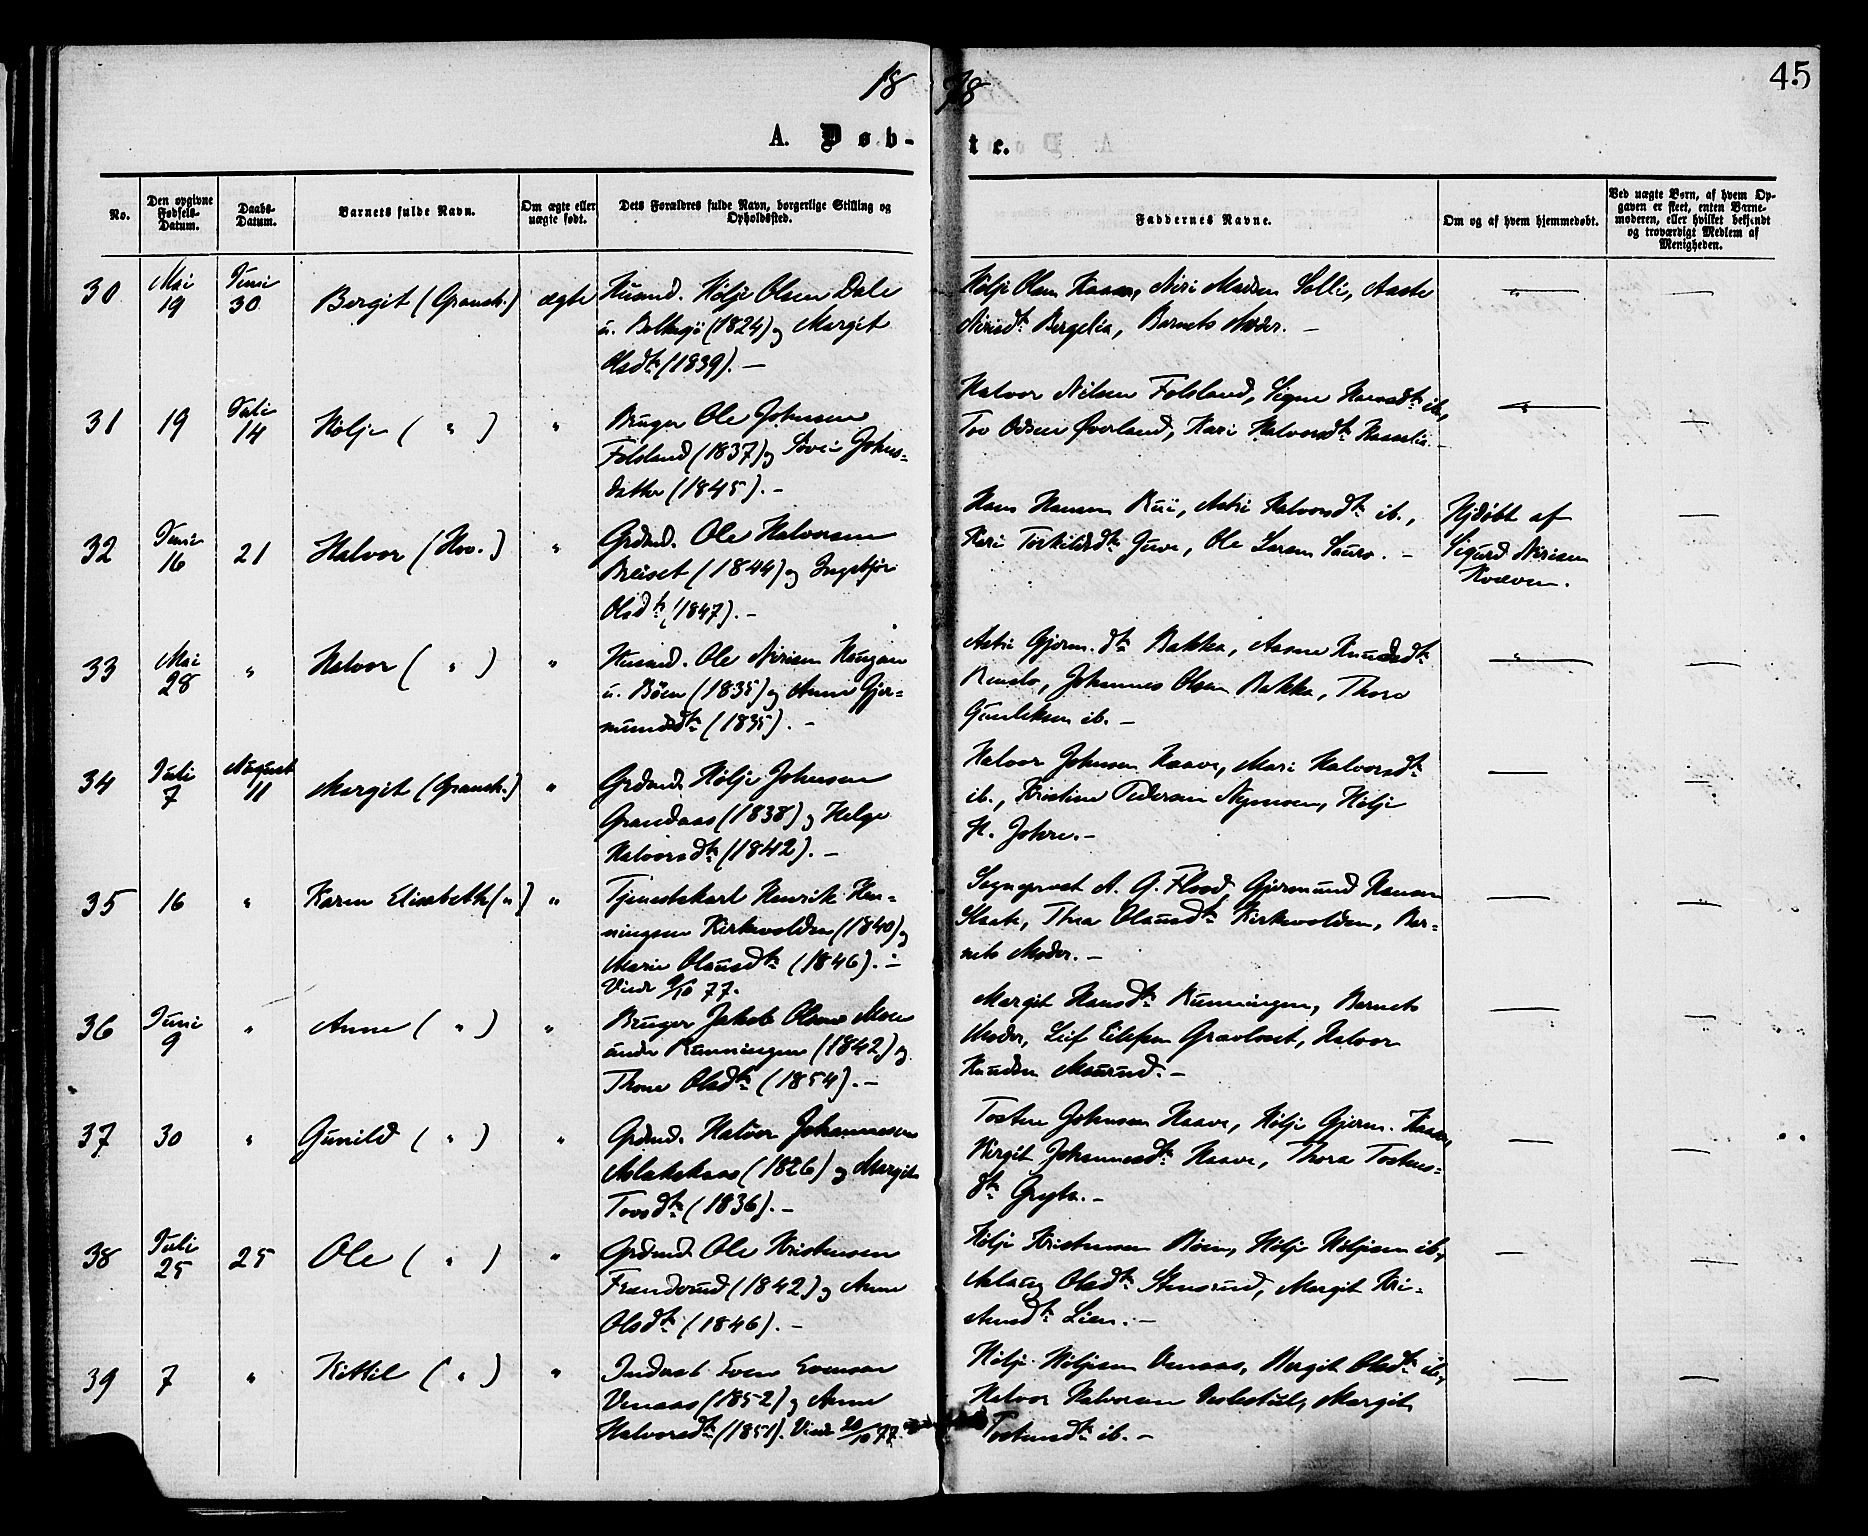 18 78
45
A. Døb-
te.
No.
Den opgivne Fødsels-Datum.
Daabs-Datum.
Barnets fulde Navn.
Om ægte eller uægte født.
Dets Forældres fulde Navn, borgerlige Stilling og Opholdssted.
Faddernes Navne.
Om og af hvem hjemmedøbt.
Ved uægte Børn, af hvem Opgaven er skeet, enten Barnemoderen, eller hvilket bekjendt og troværdigt Medlem af Menigheden.
30 Mai 19 Juni 30 Bergit (Gransh.) ægte
Husmd. Hølje Olsen Dale
u. Bolkesjø (1824) og Margit
Olsdtr (1839). —
Hølje Olsen Haave, Niri Madsen Solli, Aaste
Nirisdtr Bergelia, Barnets Moder. —
31 19 Juli 14 Hølje ( " ) "
Bruger Ole Johnsen
Følsland (1837) og Johns-
datter (1845). —
Halvor Nilsen Følsland, Signe dtr ib.,
Tov Øverland, Kari Halvorsdtr
32 Juni 16 21 Halvor (Hov.) "
Grdmd. Ole Halvorsen
Breiset (1844) og Ingebjør
Olsdtr (1847). —
Hans Hansen Rui, Astri Halvorsdtr ib.,
Kari Torkildsdtr Juve, Ole Larsen —
Hjdøbt af
Sigurd Nirisen
Kvæven.
33 Mai 28 " Halvor ( " ) "
Husmd. Ole Nirisen Haugan
u. Bøen (1835) og Anne Gjer-
mundsdtr (1835). —
Astri Gjerm. dtr Bakka, Aasne Knudsdtr
Johannes Olsen Bakka, Thore
Gunleksen ib. —
34 Juli 7 August 11 Margit (Gransh.) "
Grdmd. Hølje Johnsen
Grandaas (1838) og Helge
Halvorsdtr (1842). —
Halvor Johnsen Haave, Mari Halvorsdtr
ib., Kristine Pedersen Nymoen, Hølje
H. Johre. —
35 16 " Karen Elisabeth ( " ) "
Tjenestekarl Henrik Hen-
ningsen Kirkevolden (1840) og
Marie Olausdtr (1846). —
Viede 9/10 77.
Sogneprest A. G. Flood, Gjermund Hansen
Thea Olausdtr Kirkevolden, Bar-
nets Moder. —
36 Juni 9 " Anne ( " ) "
Bruger Jakob Olsen Moen
under Runningen (1842) og
Thone Olsdtr (1854). —
Margit Hansdtr Runningen, Barnets
Moder, Leif Eilefsen Gravloset, Halvor
Knudsen Maurud. —
37 30 " Gunild ( " ) "
Grdmd. Halvor Johannesen
Aslakskaas (1826) og Margit
Tovsdtr (1836). —
Tosten Johnsen Haave, Hølje Gjerm. Haave
Birgit Johannesdtr Haave, Thora Tostens-
dtr Gryta. —
38 Juli 25 25 Ole ( " ) "
Grdmd. Ole Kristensen
Frændrud (1842) og Anne
Olsdtr (1846). —
Hølje Kristensen Bøen, Hølje Høljesen ib.,
Aslaug Olsdtr Stensrud, Margit Kri-
stensdtr Lien. —
39 7 " Kittil ( " ) "
Inderst Even Evensen
Venaas (1852) og Anne
Halvorsdtr (1851). Viede 20/10 77.
Hølje Høljesen Venaas, Bergit Olsdtr ib.,
Halvor Halvorsen Veslestul, Margit
Tostensdtr ib. —